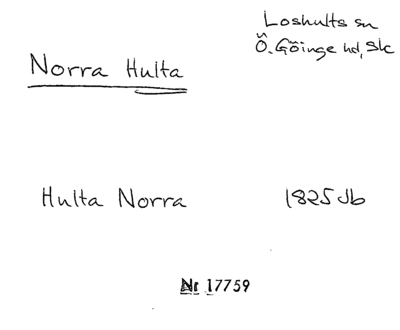 Loshults sn
Ö. Göinge hd, Sk
Norra Hulta
Hulta Norra 1825 Jb
Nr 17759